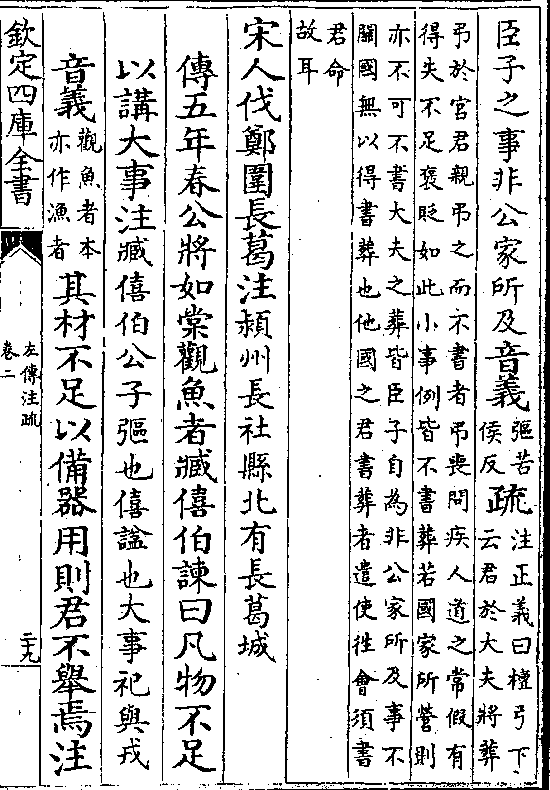 臣子之事非公家所及音義彄苦侯反疏注正義曰檀弓下云君於大夫將葬
弔於宫君親弔之而不書者弔喪問疾人道之常假有
得失不足褒貶如此小事例皆不書葬若國家所營則
亦不可不書大夫之葬皆臣子自為非公家所及事不
關國無以得書葬也他國之君書葬者遣使徃會須書
君命
故耳
宋人伐鄭圍長葛注潁州長社縣北有長葛城
傳五年春公將如棠觀魚者臧僖伯諫曰凡物不足
以講大事注臧僖伯公子彄也僖諡也大事祀與戎
音義觀魚者本亦作漁者其材不足以備器用則君不舉焉注
欽定四庫全書
左傳注疏
卷二
二九